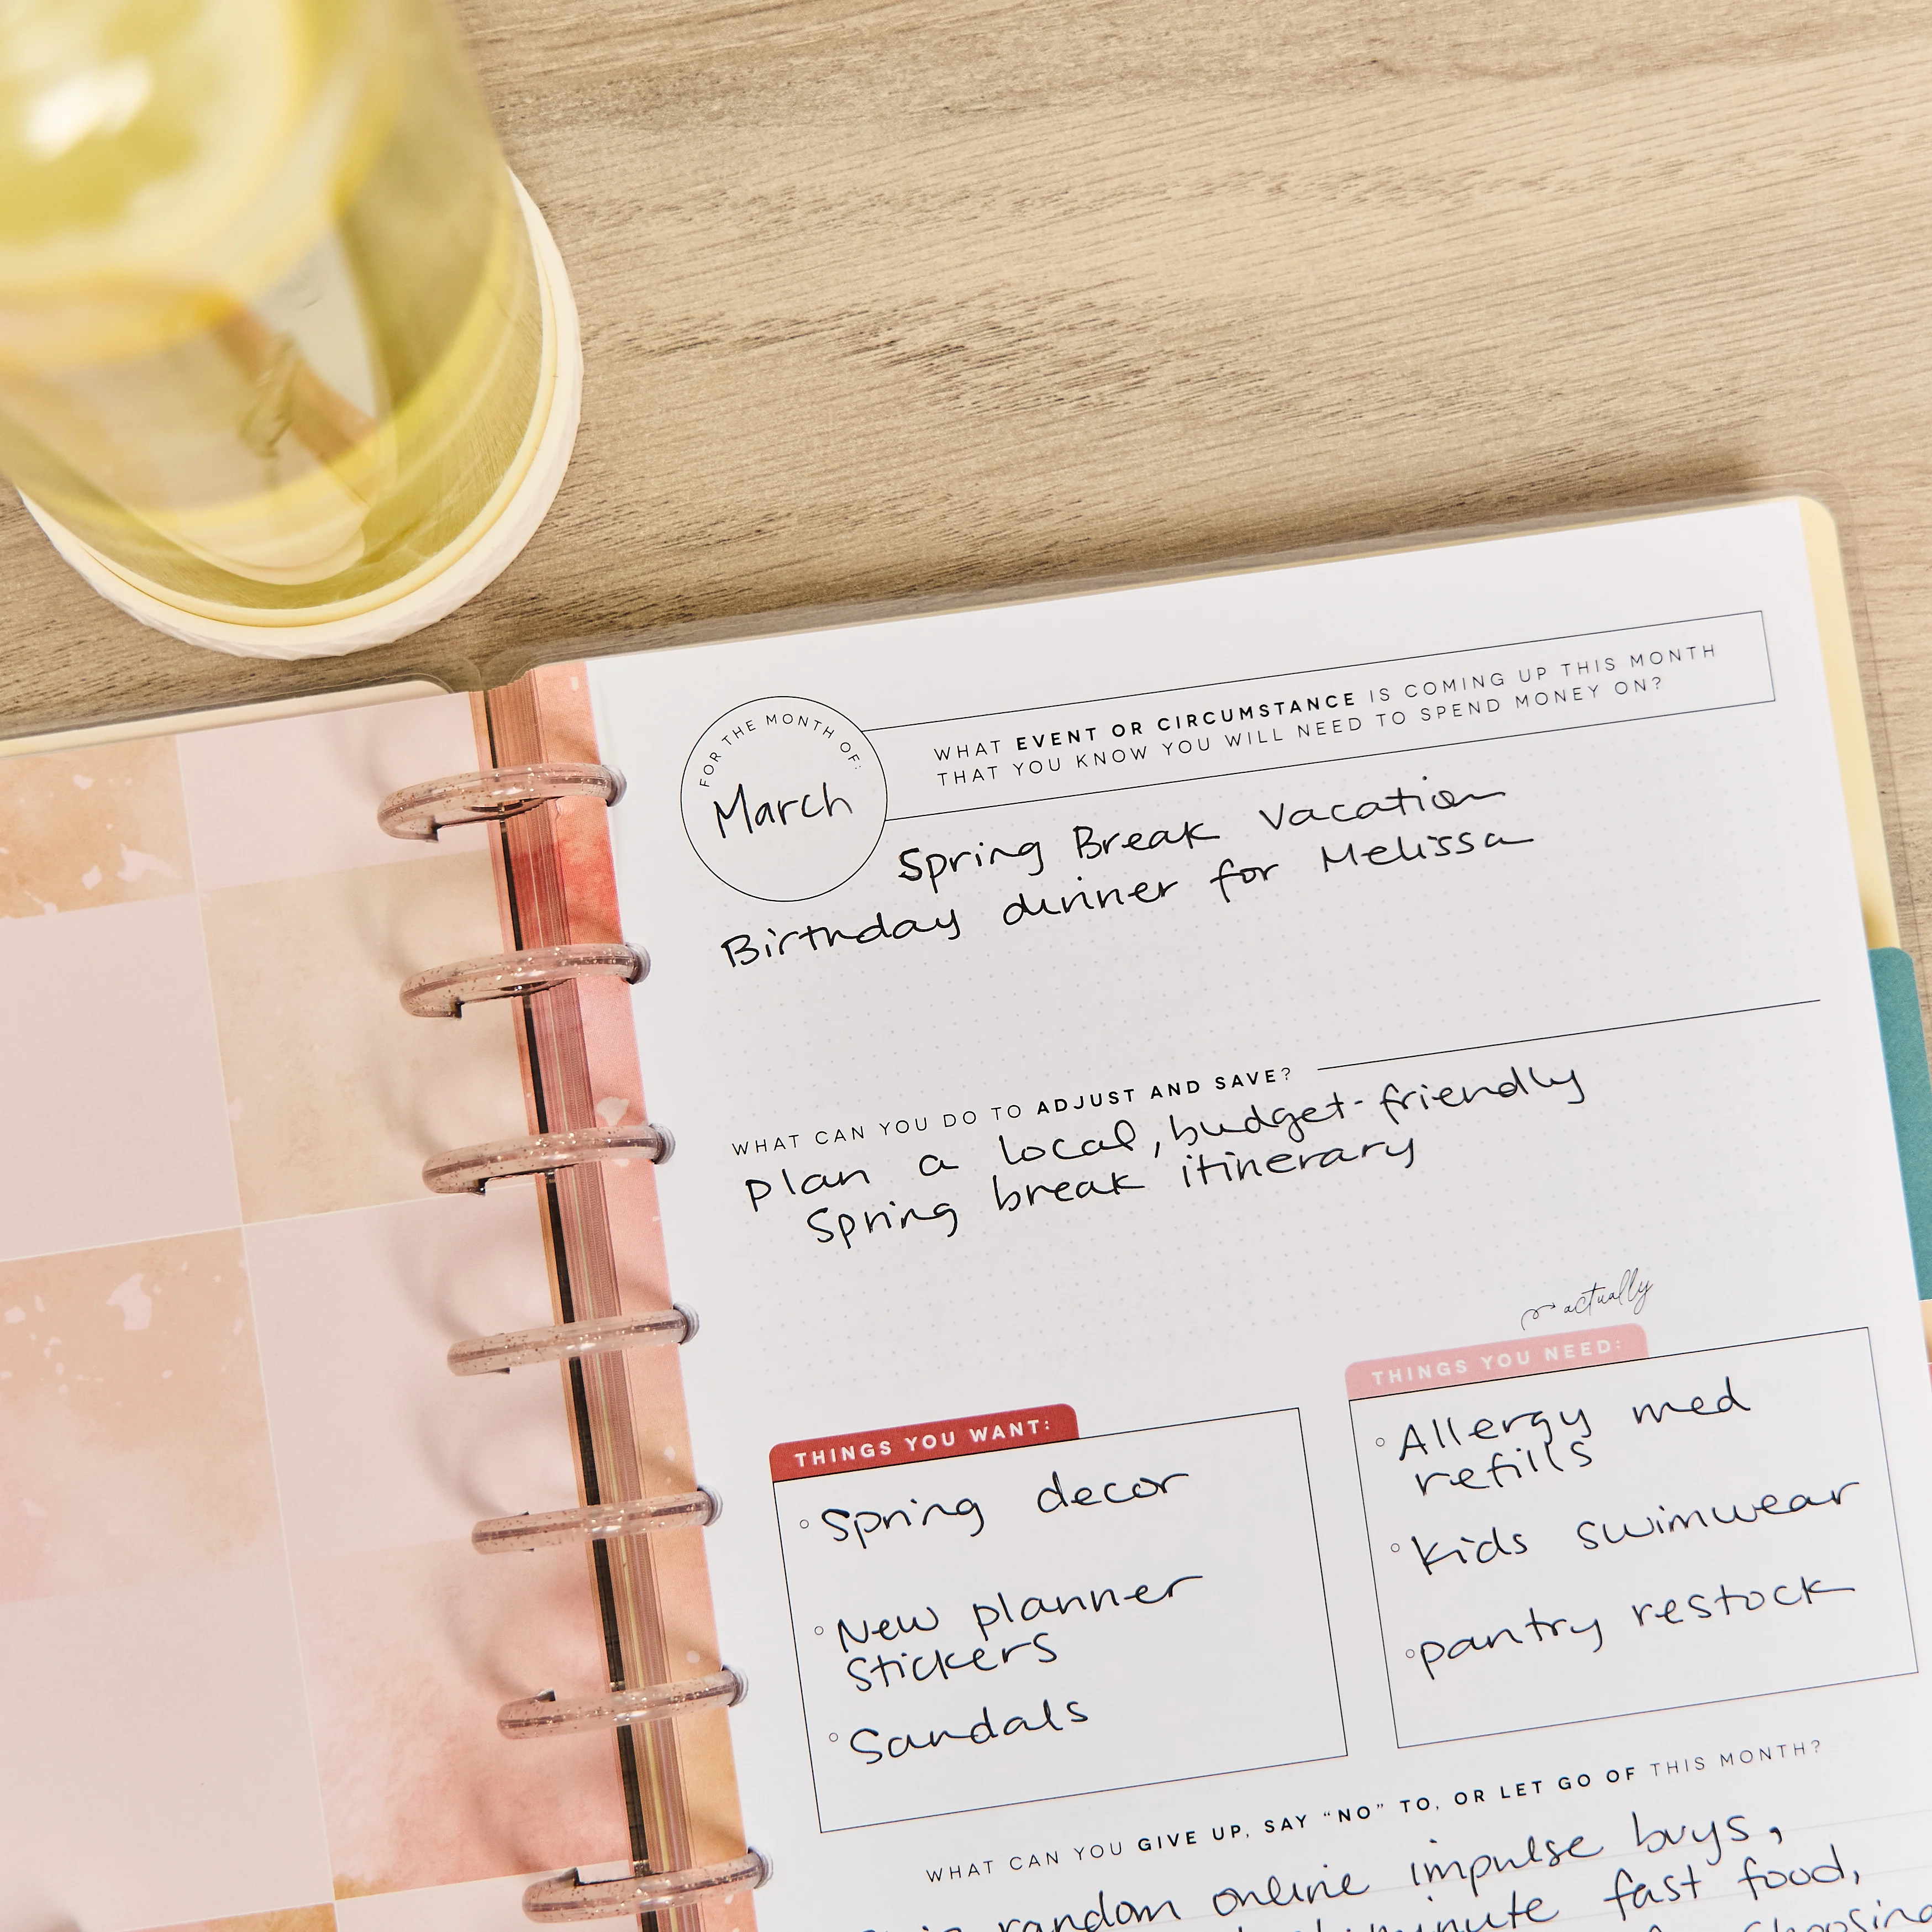 FOR THE MONTH OF:
March
WHAT EVENT OR CIRCUMSTANCE IS COMING UP THIS MONTH
THAT YOU KNOW YOU WILL NEED TO SPEND MONEY ON?
Spring Break Vacation
Birthday dinner for Melissa
WHAT CAN YOU DO TO ADJUST AND SAVE?
plan a local, budget-friendly
Spring break itinerary
THINGS YOU WANT:
Spring decor
New planner
Stickers
Sandals
actually
THINGS YOU NEED:
Allergy med
refills
kids swimwear
pantry restock
WHAT CAN YOU GIVE UP, SAY “NO” TO, OR LET GO OF THIS MONTH?
random online impulse buys,
minute fast food,
choosing